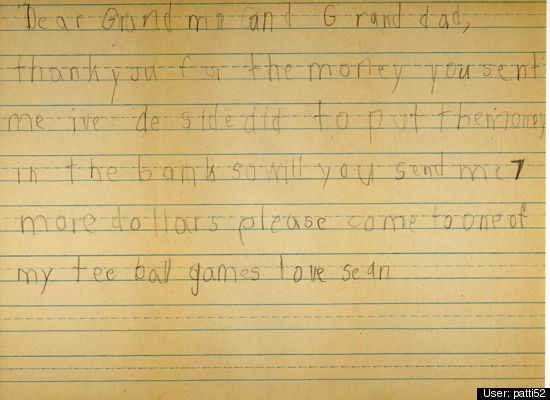 Dear Grand ma and Grand dad,
thank you for the money you sent
me ive de side did to put the money
in the bank so will you send me 7
more dollars please come to one of
my tee ball games love sean
User: patti52